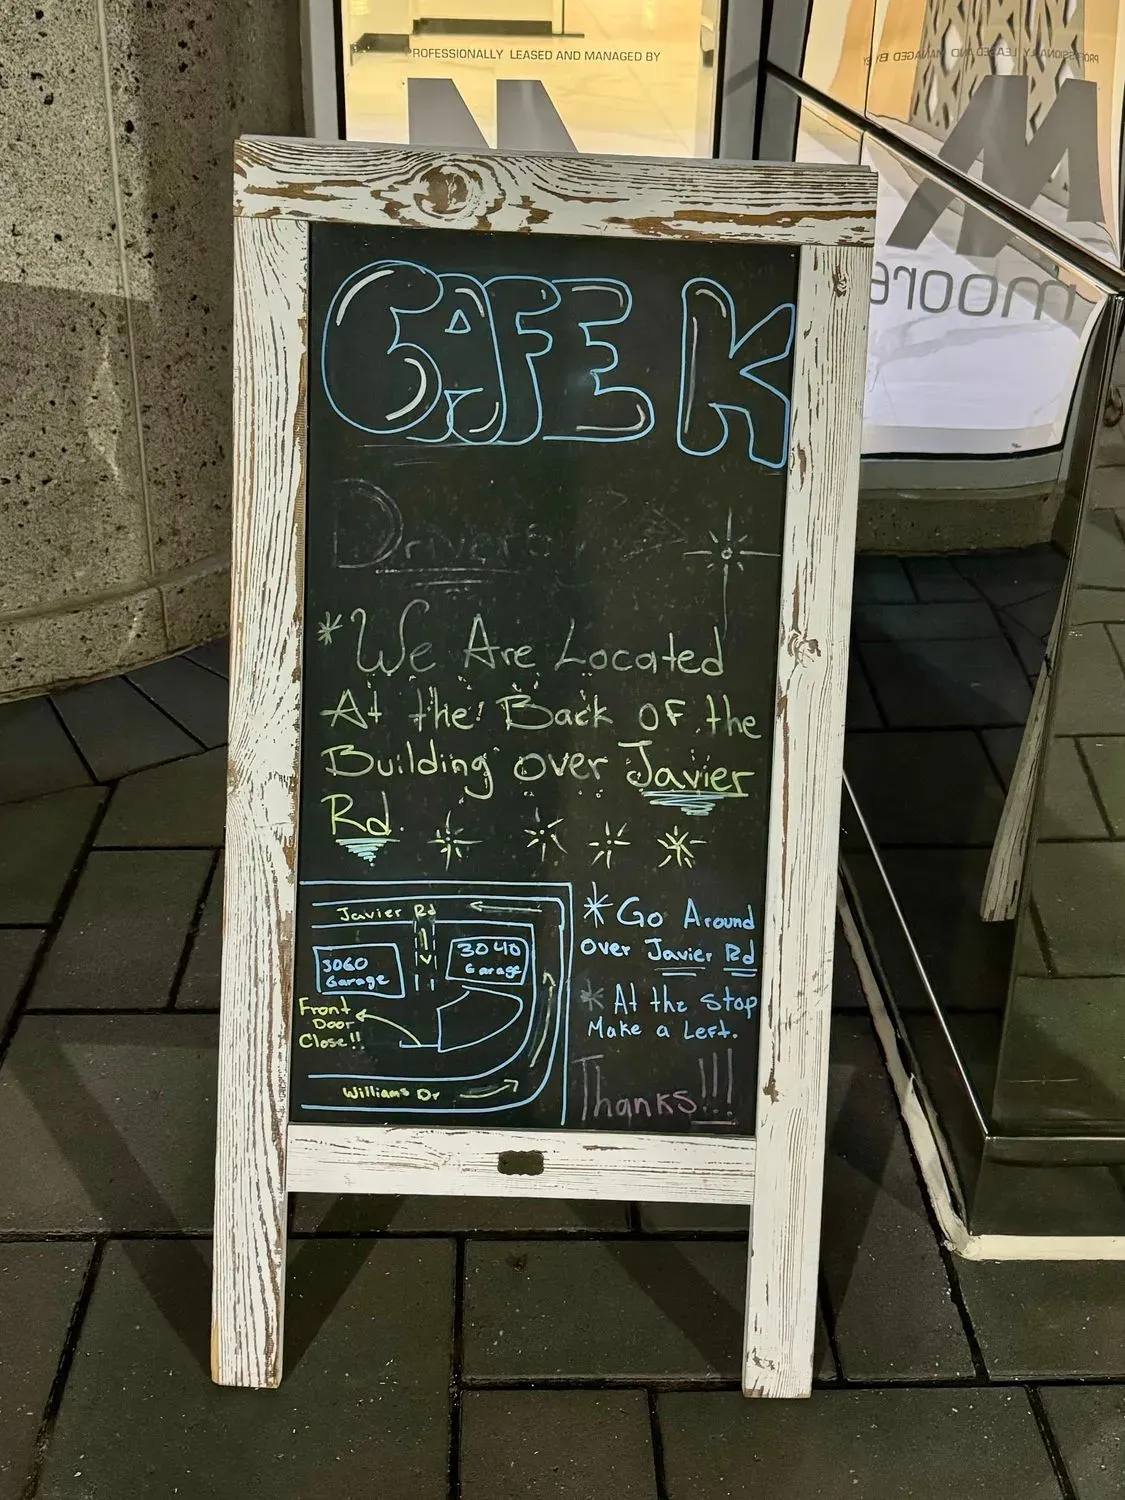 PROFESSIONALLY LEASED AND MANAGED BY
PROFESSIONALLY LEASED AND MANAGED BY
moore
CAFE K
Drivers
*We Are Located
At the Back OF the
Building over Javier
Rd.
Javier Rd
3060
Garage
3040
Garage
Front
Door
Close!!
Williams Dr
*Go Around
over Javier Rd
*At the Stop
Make a Left.
Thanks!!!